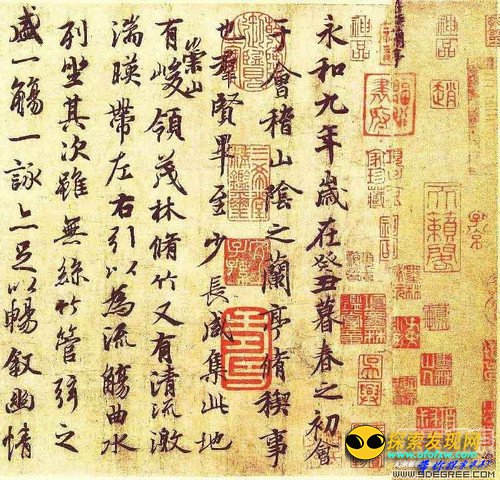 永和九年歲在癸丑暮春之初會
于會稽山陰之蘭亭脩稧事
也羣賢畢至少長咸集此地
有崇山峻領茂林脩竹又有清流激
湍暎帶左右引以為流觴曲水
列坐其次雖無絲竹管弦之
盛一觴一詠亦足以暢敘幽情
神品
趙
天籟閣
探索发现网
www.ufofxw.com
WWW.9DEGREE.COM